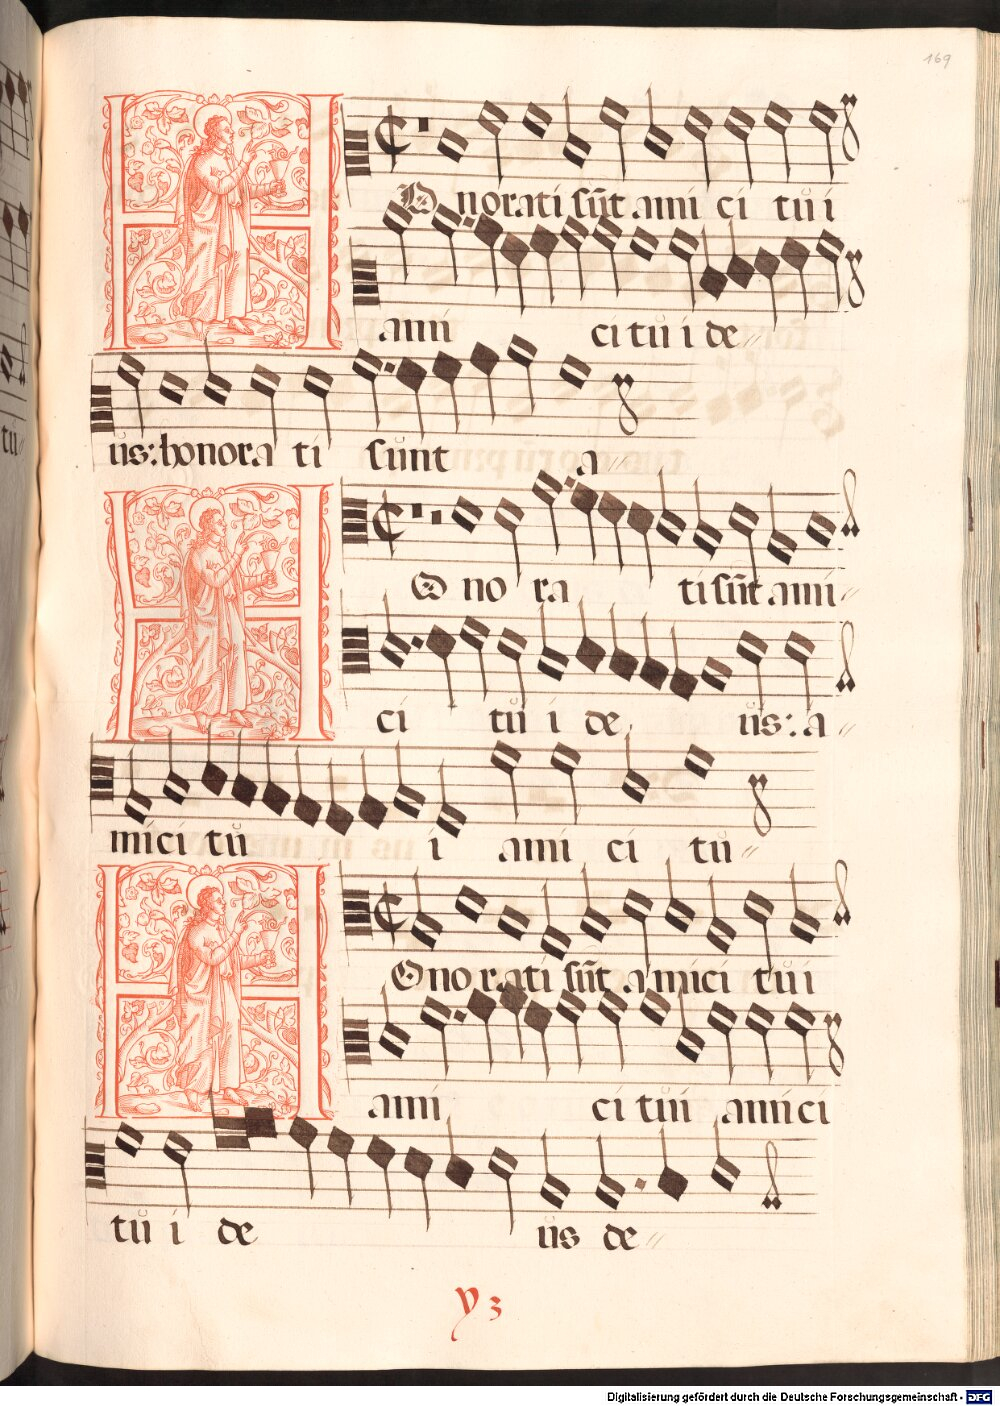 169
Onorati sūt ami ci tŭ i
ami ci tŭ i de
ŭs: honora ti sŭnt a
O no ra ti sūt ami
ci tŭ i de ŭs: a
mici tŭ i ami ci tŭ
Onorati sūt amici tŭ i
ami ci tŭi amici
tŭ i de ŭs de
y 3
Digitalisierung gefördert durch die Deutsche Forschungsgemeinschaft - DFG